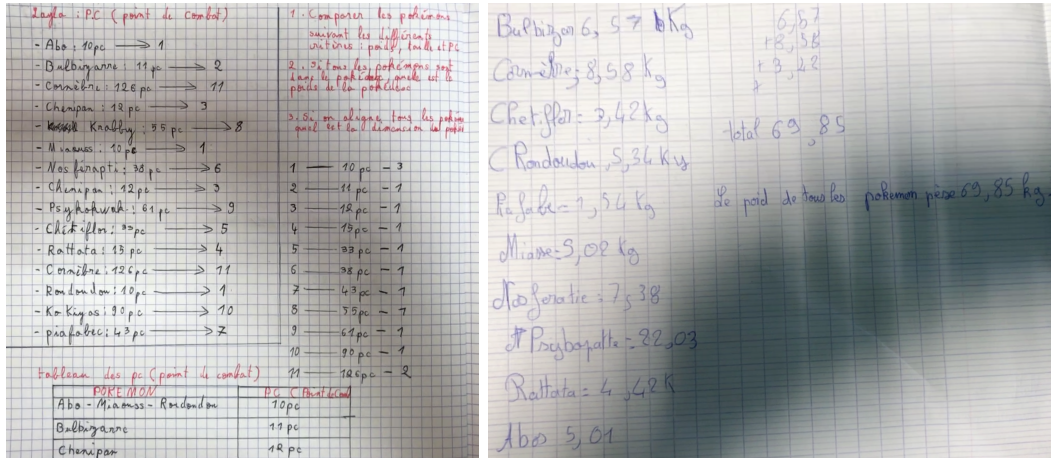 Layla : PC ( point de combat)
- Abo : 10pc → 1
- Bulbizarre : 11 pc → 2
- Cornèbre : 126 pc → 11
- Chenipan : 12 pc → 3
- Krabby : 55 pc → 8
- Miaouss : 10pc → 1
- Nosférapti : 38 pc → 6
- Chenipan : 12pc → 3
- Psykokwak : 61 pc → 9
- Chétiflor : 33pc → 5
- Rattata : 15 pc → 4
- Cornèbre : 126pc → 11
- Rondoudou : 10pc → 1
- Kokiyas : 90 pc → 10
- piafabec : 43 pc → 7
1. Comparer les pokémons
suivant les différents
critères : poids, taille et PC
2. Si tous les pokémons sont
dans la pokédex, quelle est le
poids de la
3. Si on aligne tous les
quel est la
1 — 10 pc — 3
2 — 11 pc — 1
3 — 12 pc — 1
4 — 15 pc — 1
5 — 33 pc — 1
6 — 38 pc — 1
7 — 43 pc — 1
8 — 55 pc — 1
9 — 61 pc — 1
10 — 90 pc — 1
11 — 126 pc — 2
tableau des pc ( point de combat)
POKEMON
PC ( Point de Com)
Abo - Miaouss - Rondoudou
10pc
Bulbizarre
11 pc
Chenipan
12 pc
Bulbizar 6, 57 Kg
Cornèbre = 8,58 Kg
Chetiflor = 3,42 Kg
Rondoudou, 5,34 Kg
Piafabe = 1,54 Kg
Miasse = 5,02 Kg
Nosferatie = 7,38
Psybopatte = 22,03
Rattata = 4,42 K
Abos 5,01
6,57
+8,58
+3,42
+
total 69,85
Le poid de tous les pokemon pèse 69,85 kg.